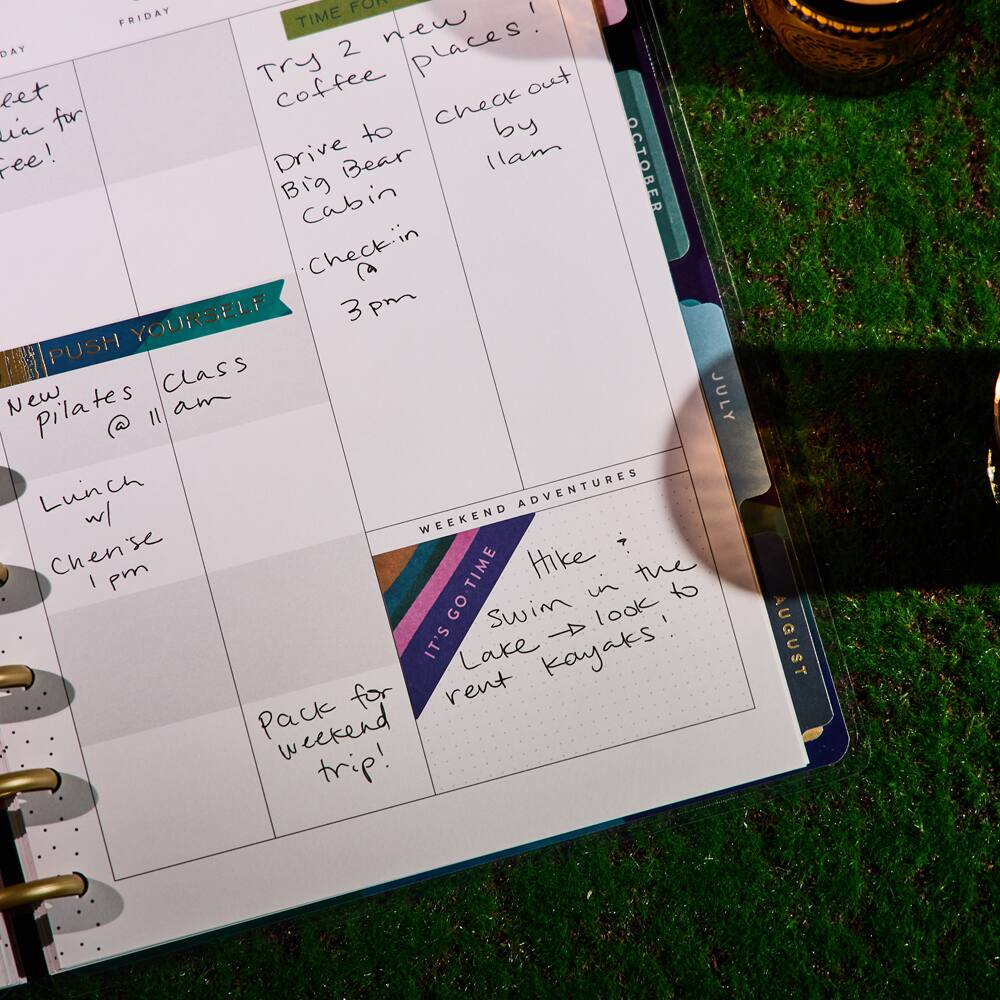 DAY
FRIDAY
TIME FOR
eet
dia for
fee!
Try 2 new
coffee places!
Drive to
Big Bear
Cabin
Check-in
@
3pm
Check out
by
11am
PUSH YOURSELF
New
Pilates Class
@ 11 am
Lunch
w/
Cherise
1 pm
Pack for
weekend
trip!
WEEKEND ADVENTURES
IT'S GO TIME
Hike &
Swim in the
Lake → look to
rent kayaks!
OCTOBER
JULY
AUGUST